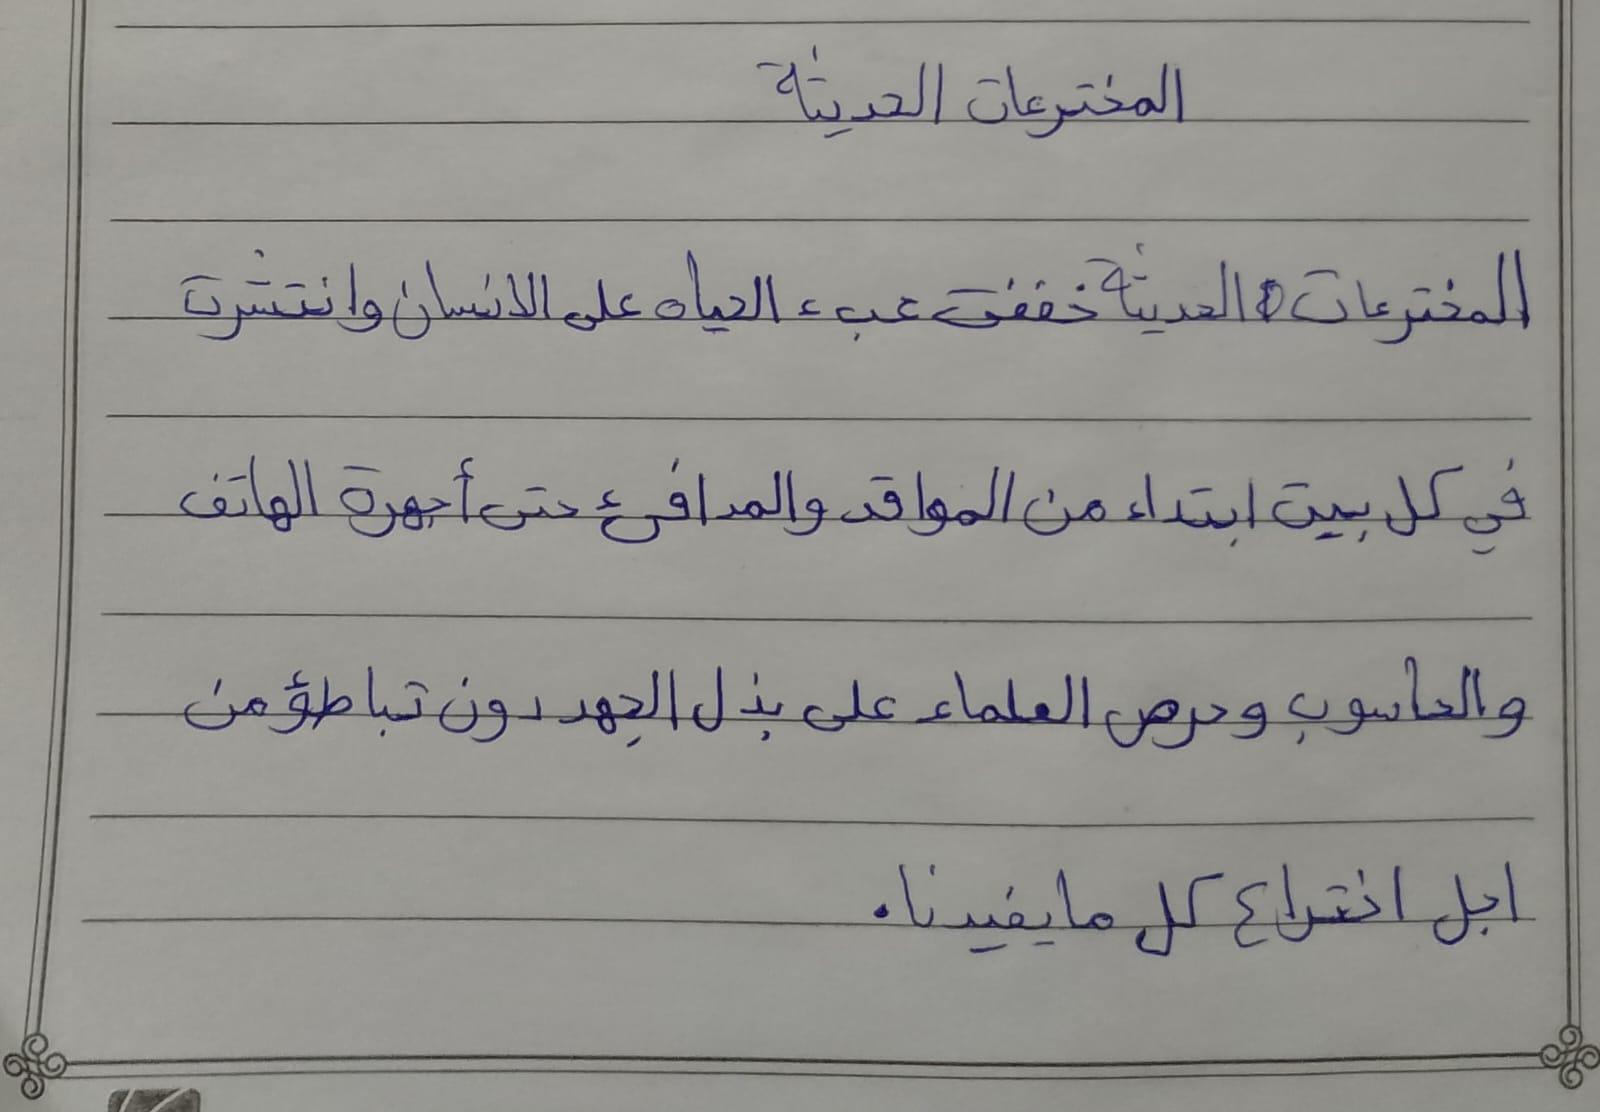 المخترعات الحديثة
المخترعات الحديثة خففت عبء الحياه على الانسان وانتشرت
في كل بيت ابتداء من المواقد والمدافئ حتى أجهزة الهاتف
والحاسوب وحرص العلماء على بذل الجهد دون تباطؤ من
اجل اختراع كل ما يفيدنا.